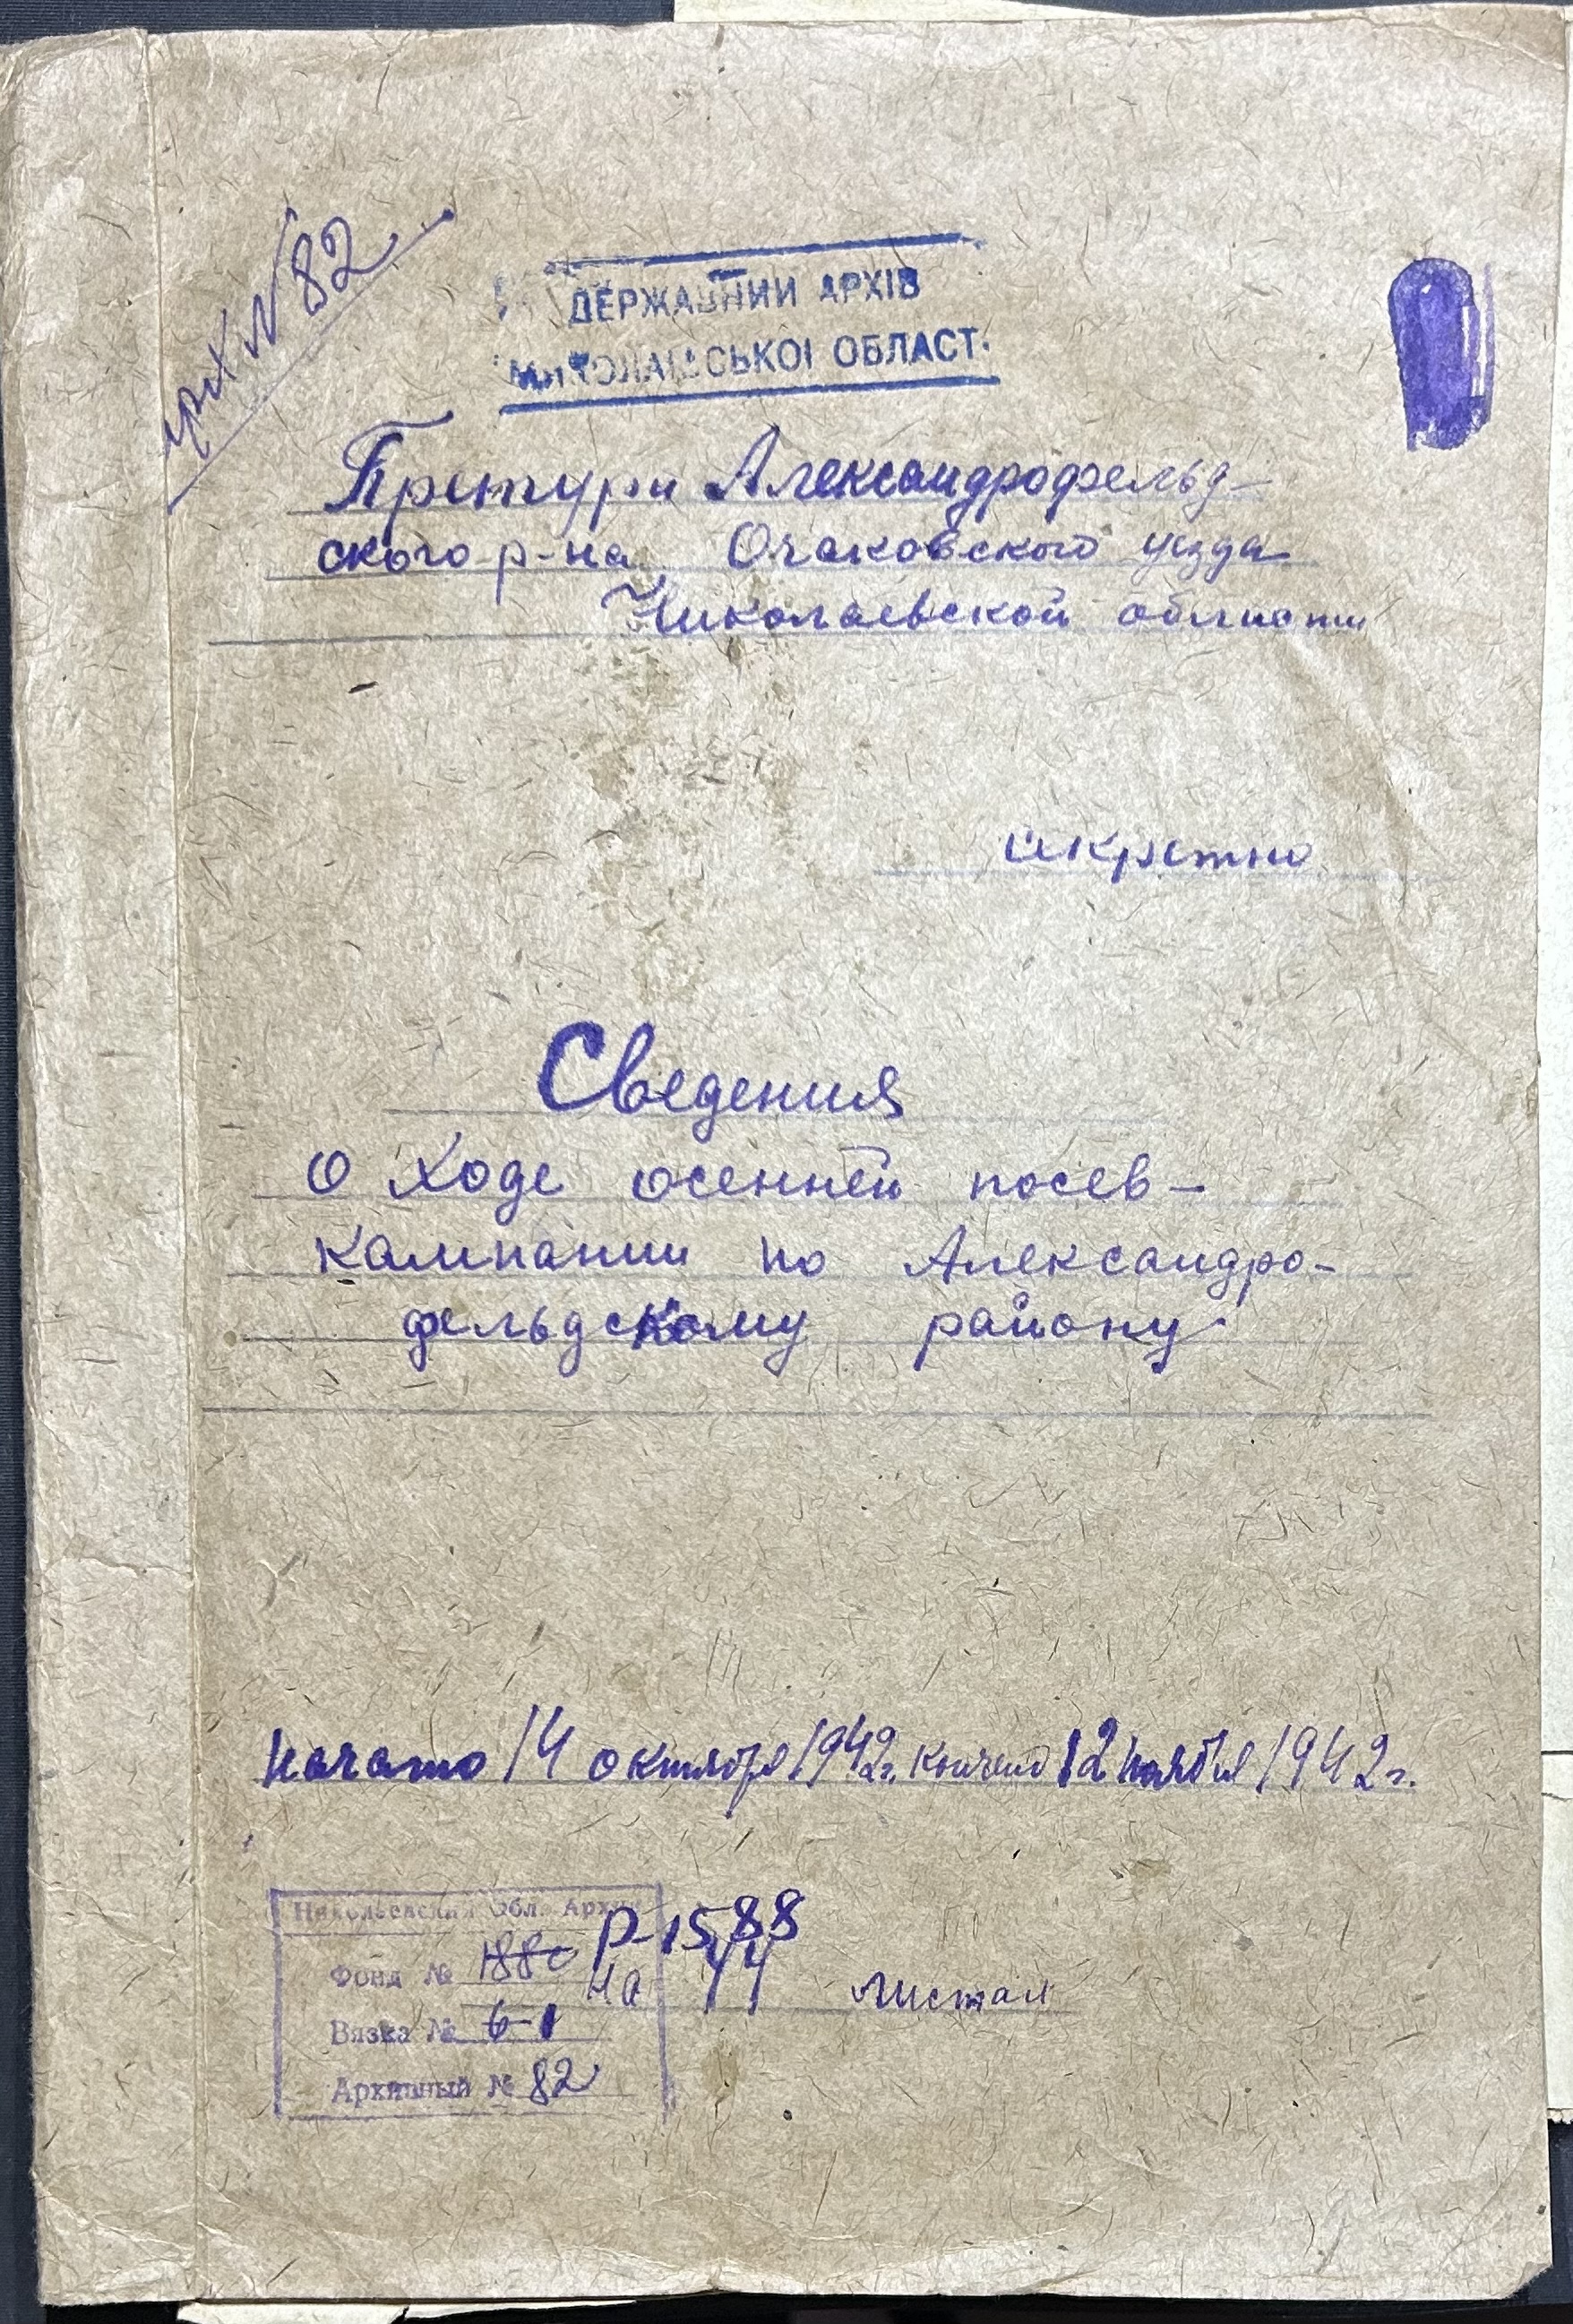 арх № 82
ДЕРЖАВНИЙ АРХІВ
МИКОЛАЇВСЬКОЇ ОБЛАСТІ
Претури Александрофельд-
ского р-на Очаковского уезда
Николаевской области
секретно
Сведения
о ходе осенней посев-
кампании по Александро-
фельдскому району
начато 14 октября 1942г. кончено 12 ноября 1942г.
Николаевский Обл. Архив
Р-1588
Фонд № 1880
на 44 листах
Вязка № 6-1
Архивный № 82